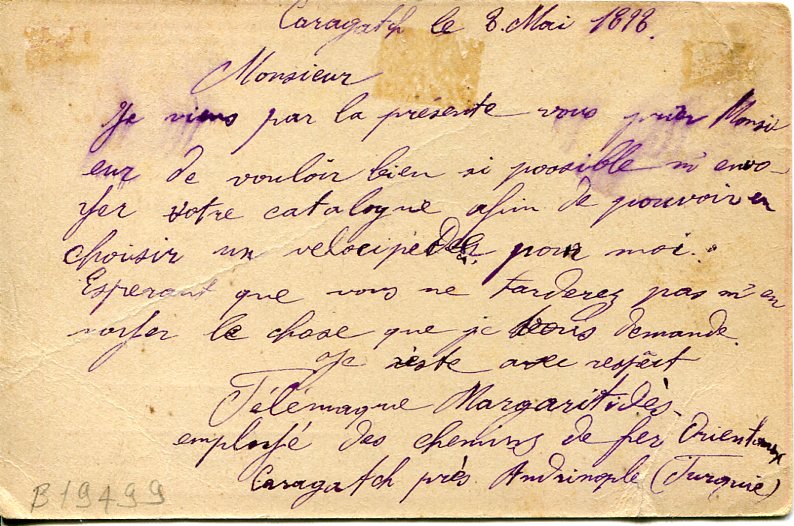 Caragatch le 8. Mai 1898.
Monsieur
Je viens par la présente vous prier Monsi
eur de vouloir bien si possible m'envo-
yer votre catalogue afin de pouvoir en
choisir un velocipède pour moi.
Esperant que vous ne tarderez pas m'en
voyer le chose que je vous demande.
Je reste avec respect
Télémaque Margaritidès
employé des chemins de fer Orientaux
Caragatch près Andrinople (Turquie)
B19499